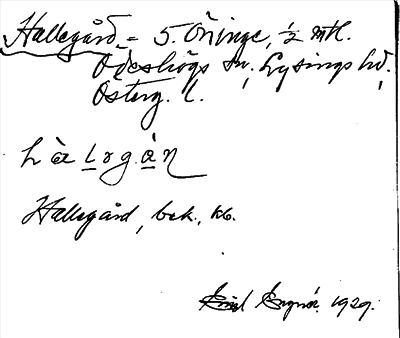 Hallegård = 5. Öninge, ½ mtl.
Ödeshögs sn, Lysings hd,
Österg. l.
hàlogàn
Hallegård, bek., kb.
1929.